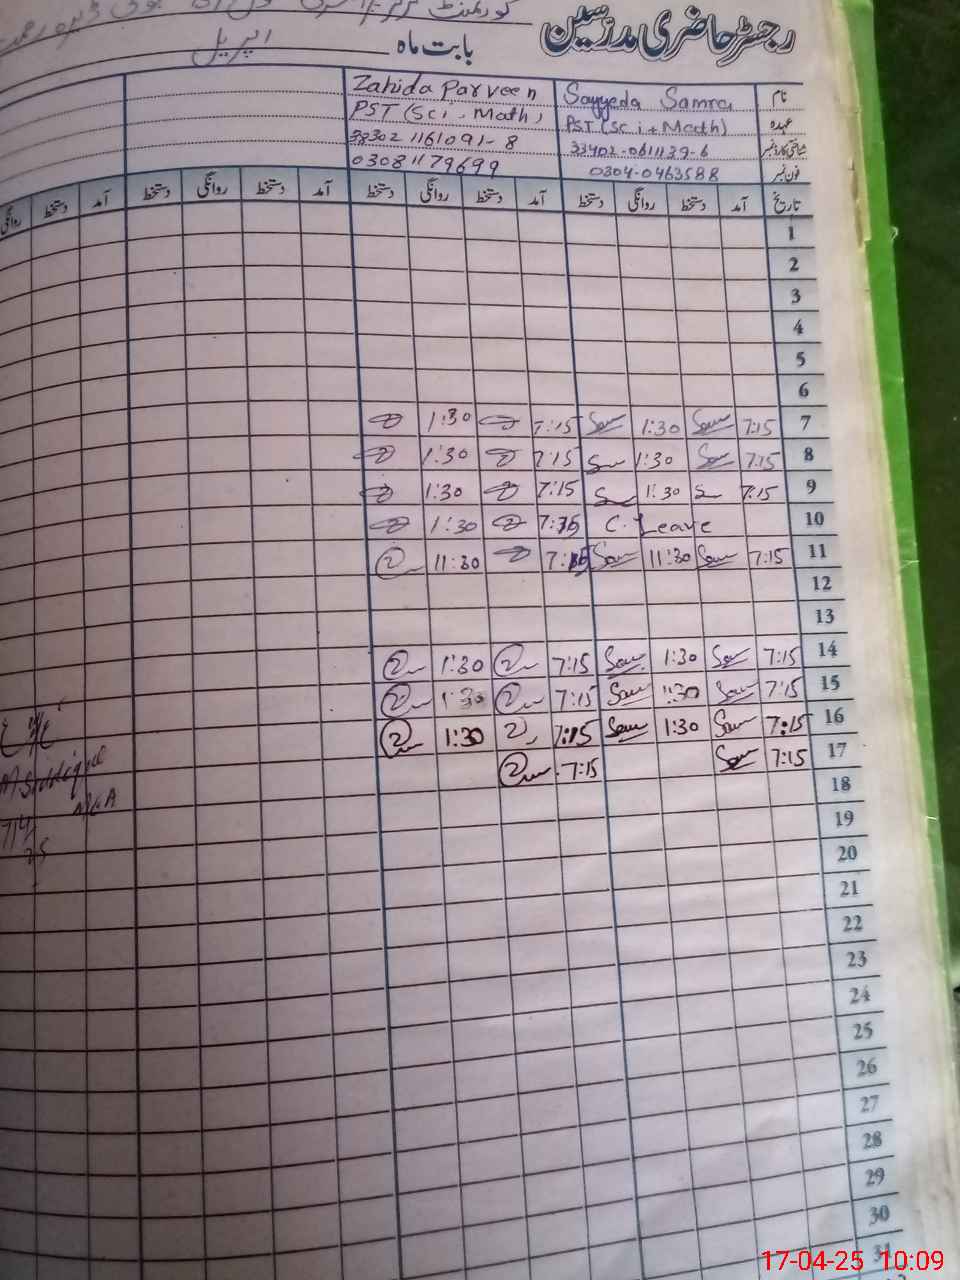 رجسٹر حاضری مدرسین
بابت ماہ اپریل
نام Sayyeda Samra Zahida Parveen
عہدہ PST (Sci + Math) PST (Sci - Math)
شناختی کارڈ نمبر 33402-0611139-6
فون نمبر 0304-0463588 03081179699
تاریخ آمد دستخط روانگی دستخط آمد دستخط روانگی دستخط آمد دستخط روانگی دستخط آمد دستخط روانگی
1
2
3
4
5
6
7 7:15 Sam 1:30 Sam 7:15 1:30
8 7:15 Sam 1:30 7:15 1:30
9 7:15 1:30 7:15 1:30
10 C. Leave 1:30
11 7:15 Sam 11:30 Sam 11:30
12
13
14 7:15 Sam 1:30 Sam 7:15 1:30
15 7:15 Sam 1:30 Sam 7:15 1:30
16 7:15 Sam 1:30 Sam 7:15 1:30
17 7:15 Sam 7:15
18
19
20
21
22
23
24
25
26
27
28
29
30
31
17-04-25 10:09